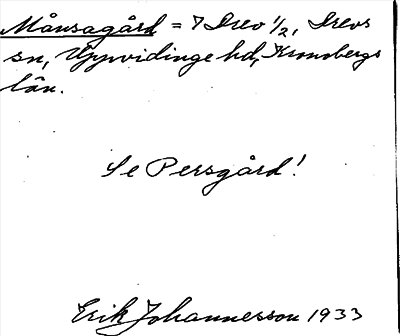 Månsagård = 7 Drev 1/2, Drevs
sn, Uppvidinge hd, Kronobergs
län.
Se Persgård!
Erik Johannesson 1933